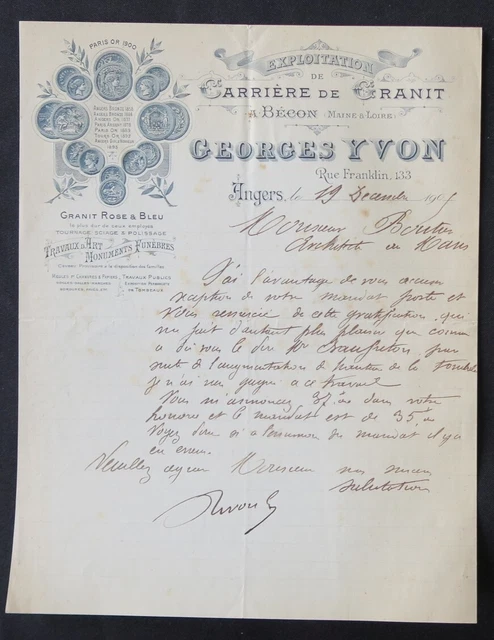 PARIS OR 1900
EXPLOITATION
DE
CARRIÈRE DE GRANIT
A BÉCON (MAINE & LOIRE)
GEORGES YVON
Rue Franklin, 133
Angers, le 19 Décembre 190
GRANIT ROSE & BLEU
le plus dur de ceux employés
TOURNAGE SCIAGE & POLISSAGE
TRAVAUX D'ART
MONUMENTS FUNÈBRES
TRAVAUX PUBLICS
Monsieur
Architecte au Mans
J'ai l'avantage de vous accuser
réception de votre mandat poste et
vous remercie de cette gratification, qui
me fait d'autant plus plaisir que comme
a dû vous le dire Mr
suite de l'augmentation de hauteur de la tombe
je n'ai rien gagné à ce travail
Vous m'annoncez 37 dans votre
honorée et le mandat est de 35
Voyez donc si à l'émission du mandat il y a
eu erreur.
Veuillez agréer Monsieur mes
salutations